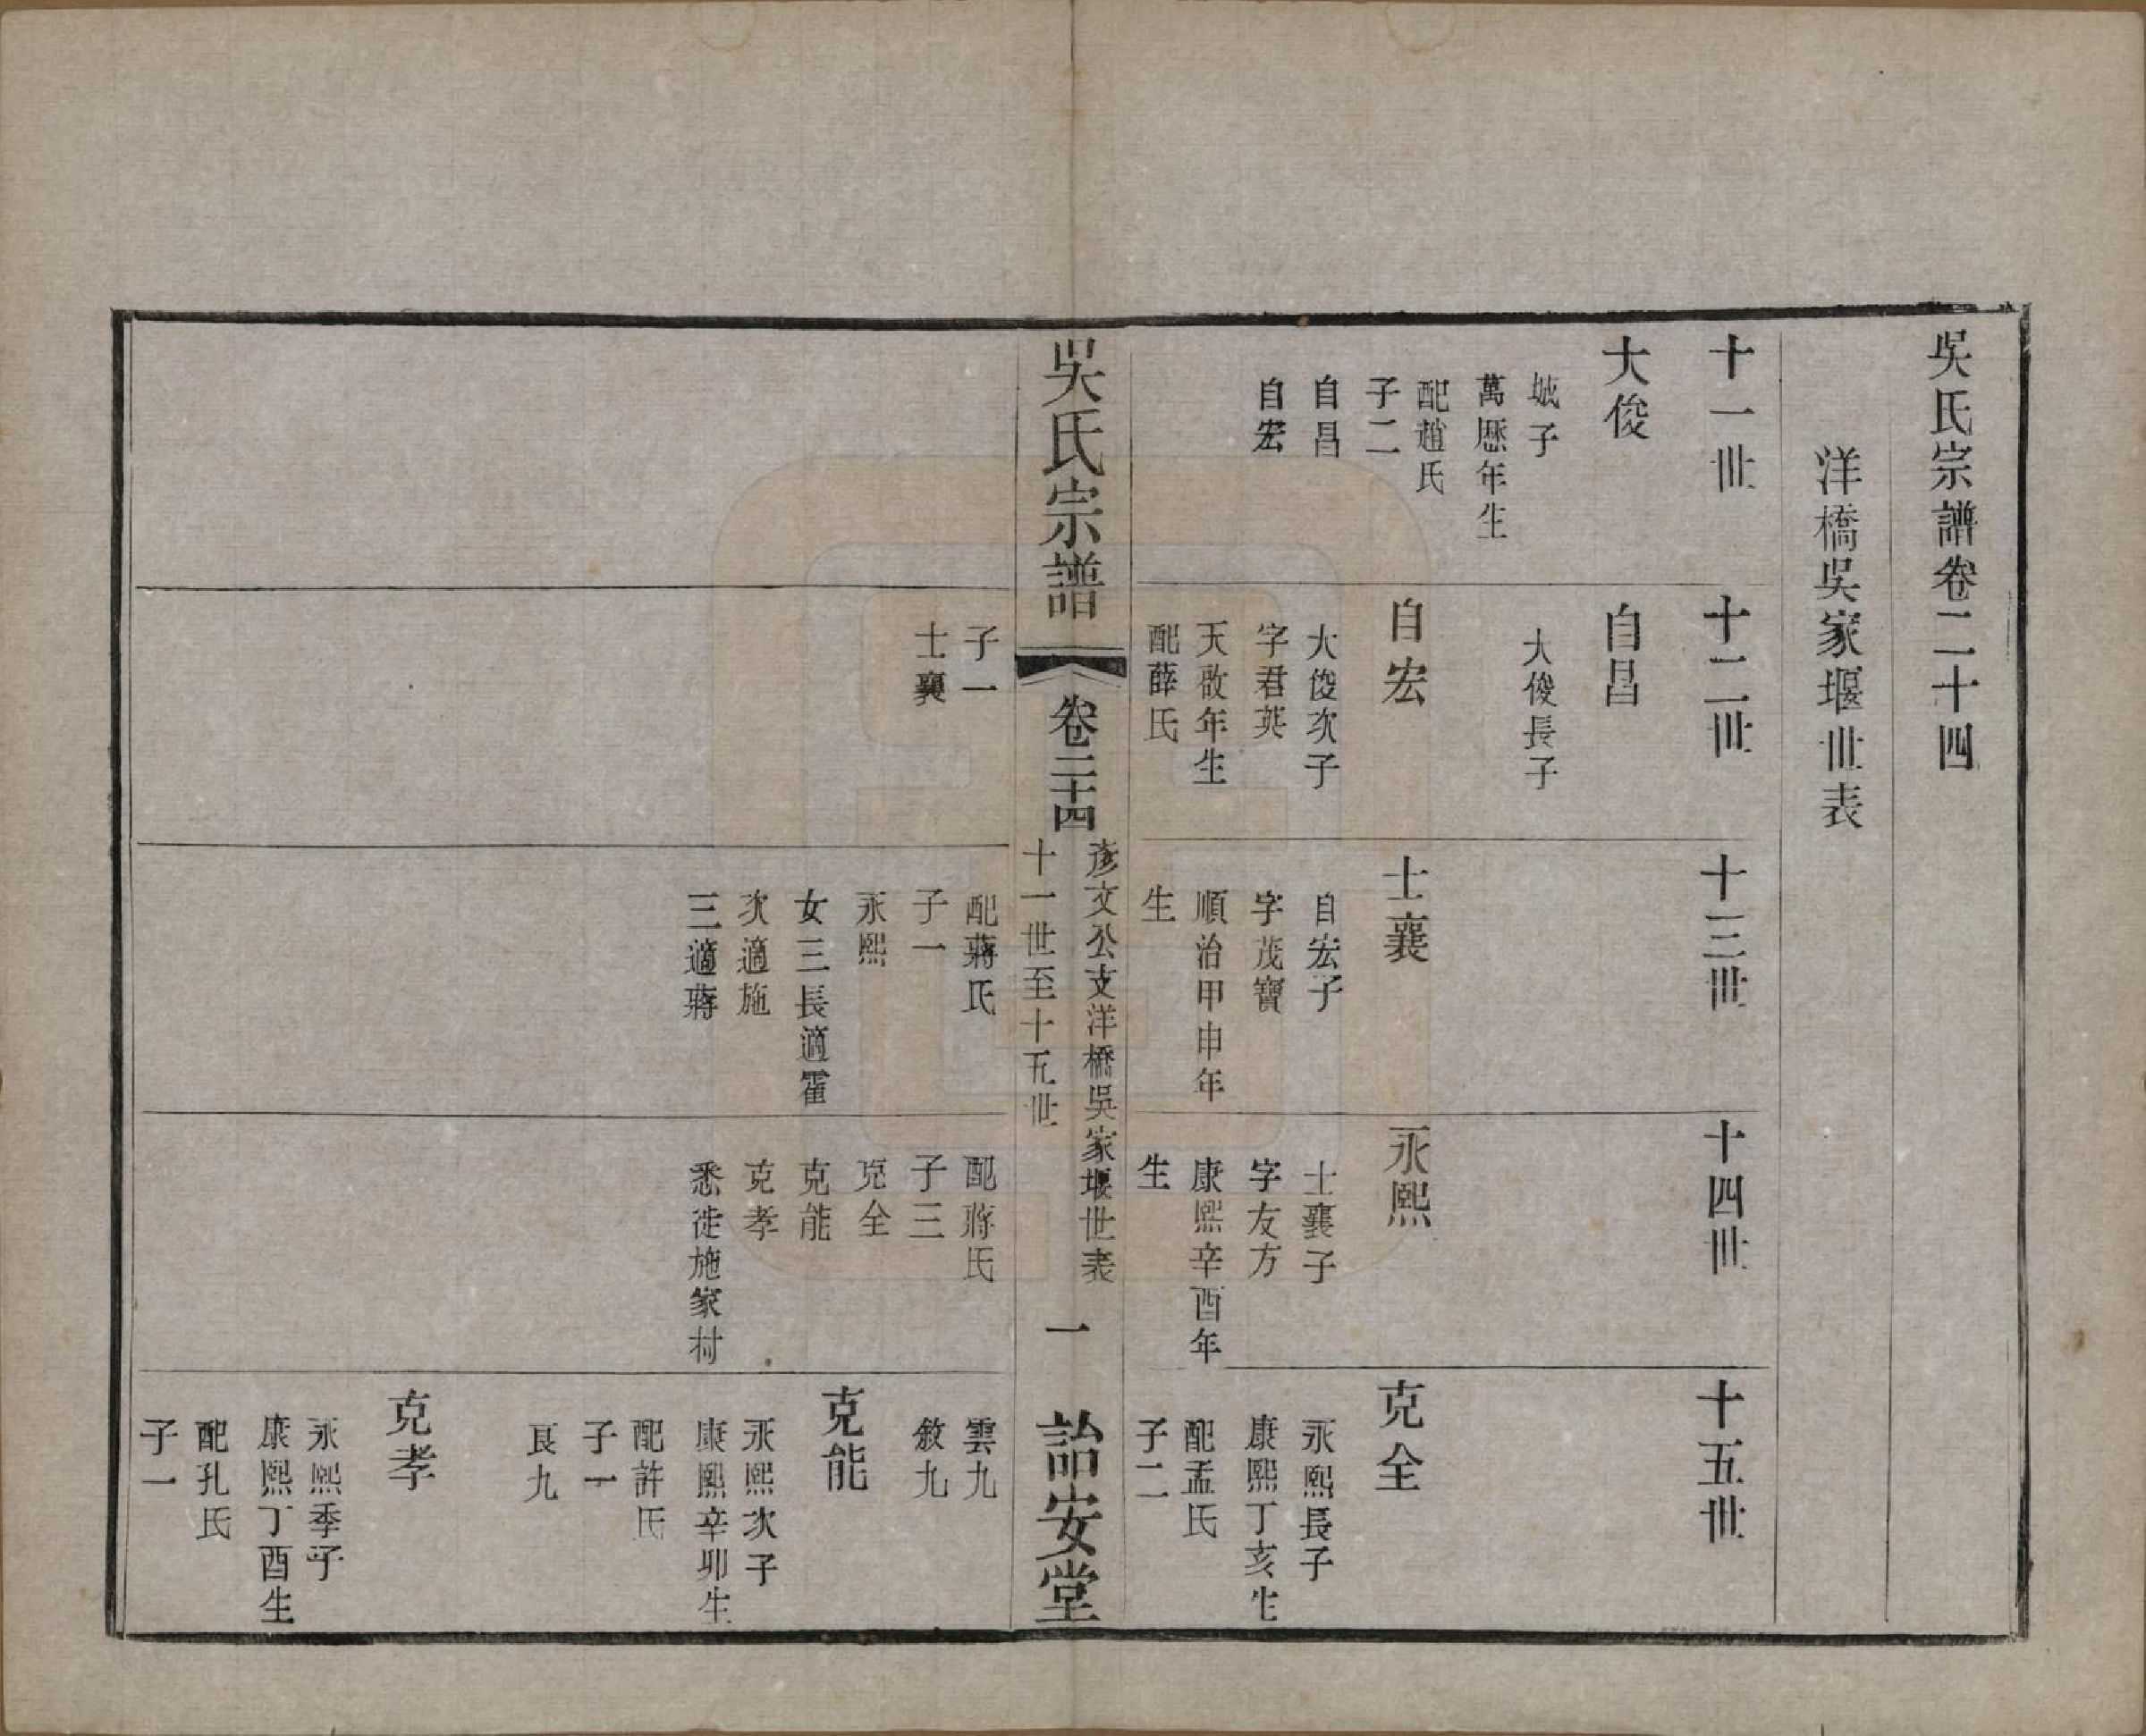 吳氏宗譜卷二十四
洋橋吳家堰世表
十一世
大俊
城子
萬歷年生
配趙氏
子二
自昌
自宏
十二世
自昌
大俊長子
自宏
大俊次子
字君英
天啟年生
配薛氏
子一
士襄
十三世
士襄
自宏子
字茂寶
順治甲申年
生
配蔣氏
子一
永熙
女三長適霍
次適施
三適蔣
十四世
永熙
士襄子
字友方
康熙辛酉年
生
配蔣氏
子三
克全
克能
克孝
悉徙施家村
十五世
克全
永熙長子
康熙丁亥生
配孟氏
子二
雲九
敘九
克能
永熙次子
康熙辛卯生
配許氏
子一
良九
克孝
永熙季子
康熙丁酉生
配孔氏
子一
吳氏宗譜
卷二十四
彥文公支洋橋吳家堰世表
十一世至十五世
一
詒安堂